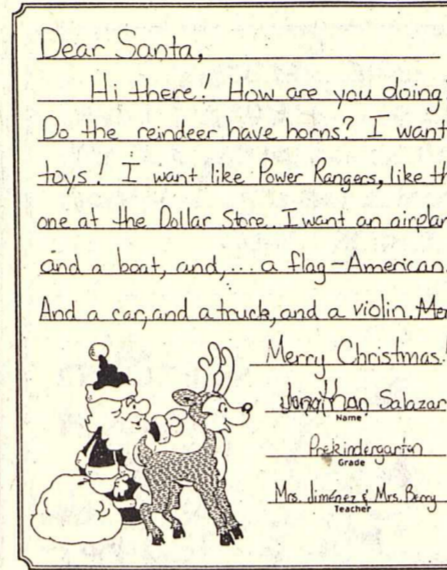 Dear Santa,
Hi there! How are you doing
Do the reindeer have horns? I want
toys! I want like Power Rangers, like th
one at the Dollar Store. I want an airplan
and a boat, and, ... a flag-American.
And a car, and a truck, and a violin. Mer
Merry Christmas!
Jonathan Salazar
Name
Prekindergarten
Grade
Mrs. Jiménez & Mrs. Berry
Teacher